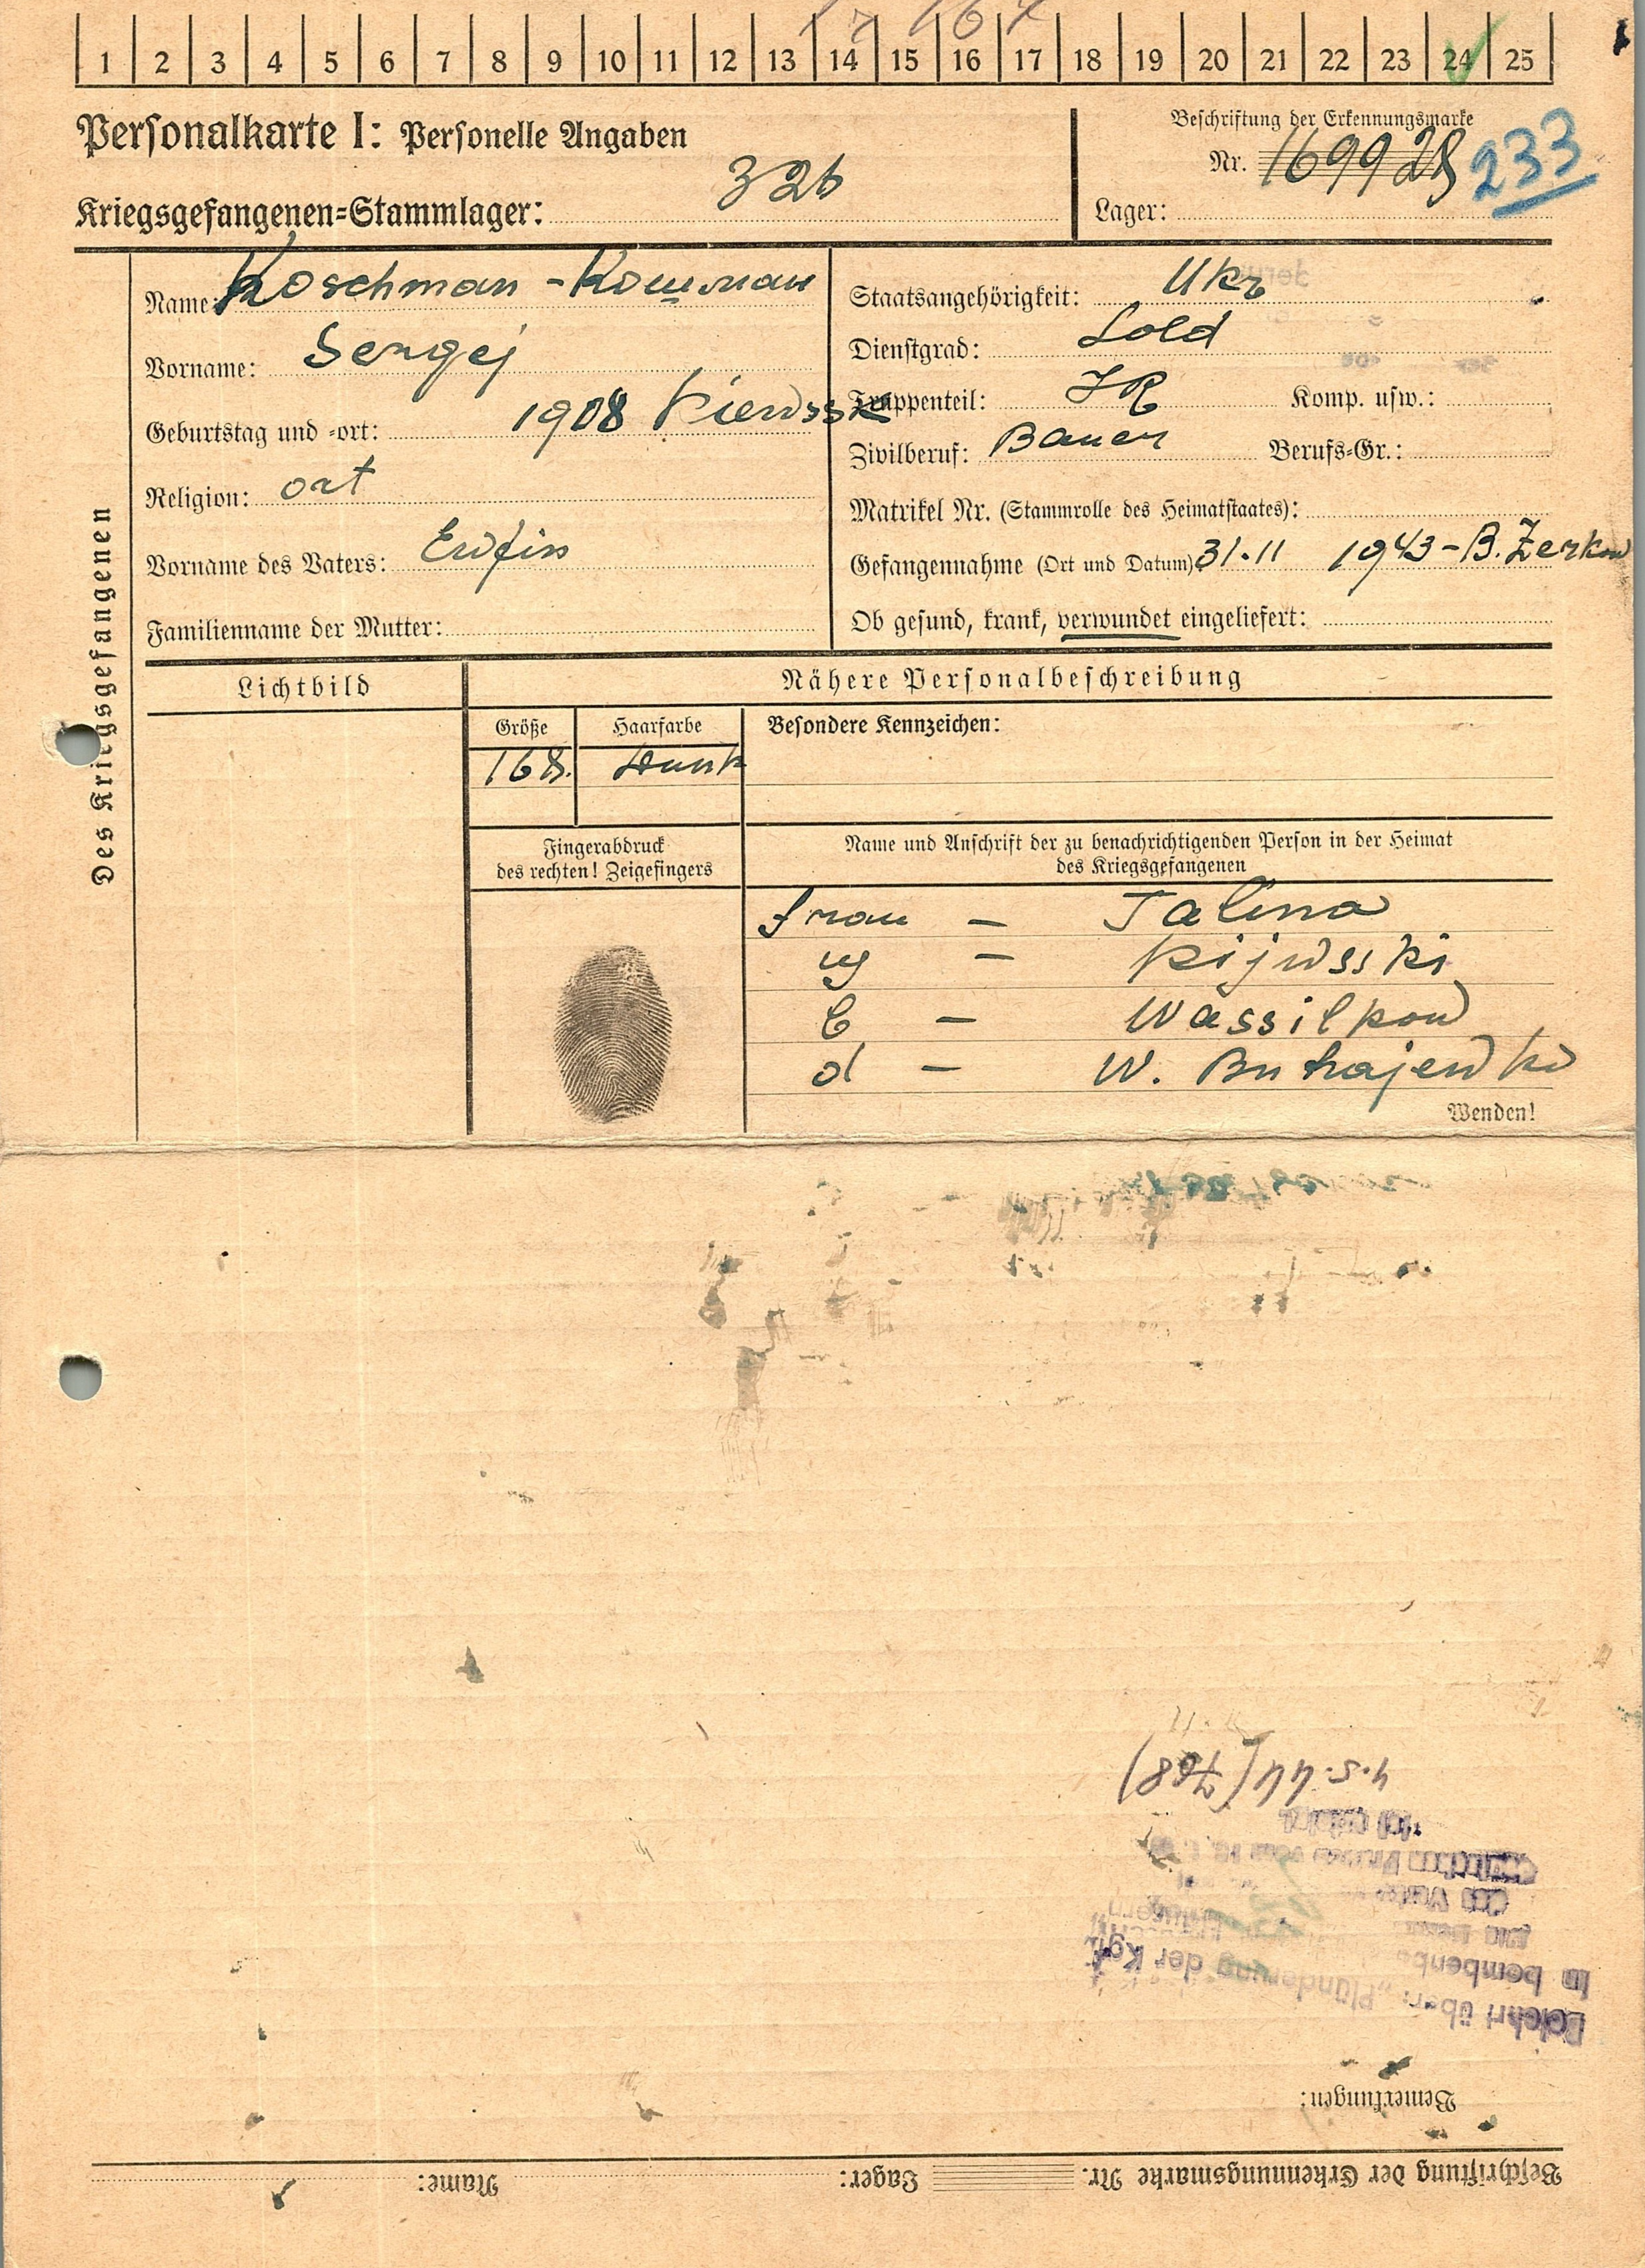 1 2 3 4 5 6 7 8 9 10 11 12 13 14 15 16 17 18 19 20 21 22 23 24 25
Personalkarte I: Personelle Angaben
Kriegsgefangenen-Stammlager: 326
Beschriftung der Erkennungsmarke
Nr. 169928 233
Lager:
Des Kriegsgefangenen
Name: Koschman - Кошман
Vorname: Sergej
Geburtstag und -ort: 1908 Kiewssk
Religion: ort
Vorname des Vaters: Ewfim
Familienname der Mutter:
Staatsangehörigkeit: Ukr
Dienstgrad: Sold
Truppenteil: JR Komp. usw.:
Zivilberuf: Bauer Berufs-Gr.:
Matrikel Nr. (Stammrolle des Heimatstaates):
Gefangennahme (Ort und Datum) 31.11 1943 - B. Zerkow
Ob gesund, krank, verwundet eingeliefert:
Lichtbild
Nähere Personalbeschreibung
Größe Haarfarbe Besondere Kennzeichen:
168. dunk
Fingerabdruck
des rechten! Zeigefingers
Name und Anschrift der zu benachrichtigenden Person in der Heimat
des Kriegsgefangenen
Frau - Talina
g - Kijwsski
b - Wassilkow
d - W. Buhajewka
Wenden!
Beschriftung der Erkennungsmarke Nr. Lager: Name:
Bemerkungen:
Belehrt über: "Plünderung der Kgf.
in bombenbe
4.5.44 (708)